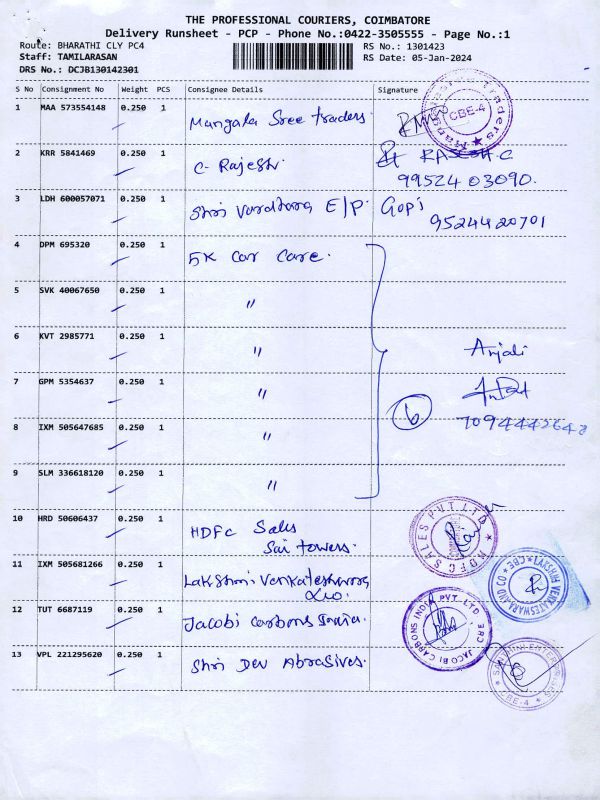 THE PROFESSIONAL COURIERS, COIMBATORE
Delivery Runsheet - PCP - Phone No.:0422-3505555 - Page No.:1
Route: BHARATHI CLY PC4 RS No.: 1301423
Staff: TAMILARASAN RS Date: 05-Jan-2024
DRS No.: DCJB130142301
S No Consignment No Weight PCS Consignee Details Signature
1 MAA 573554148 0.250 1 Mangala Sree traders CBE-4
2 KRR 5841469 0.250 1 C. Rajesh
99524 03090.
3 LDH 600057071 0.250 1 Shri Vardhara E/P. Gopi
9524420701
4 DPM 695320 0.250 1 5K Car Care.
5 SVK 40067650 0.250 1 "
6 KVT 2985771 0.250 1 " Anjali
7 GPM 5354637 0.250 1 " 6
7094442642
8 IXM 505647685 0.250 1 "
9 SLM 336618120 0.250 1 "
10 HRD 50606437 0.250 1 HDFC Sales
Sai towers.
HDFC SALES PVT LTD
11 IXM 505681266 0.250 1 Lakshmi Venkateshwara
&co.
12 TUT 6687119 0.250 1 Jacobi Carbons India.
JACOBI CARBONS INDIA PVT. LTD CBE
13 VPL 221295620 0.250 1 Shri Dev Abrasives.
CBE-4